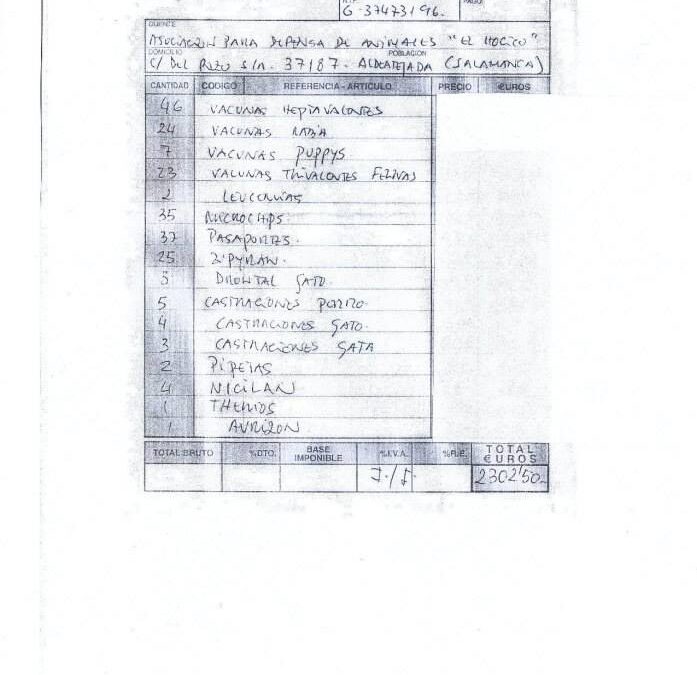 G-37473196.
CLIENTE
ASOCIACION PARA DEFENSA DE ANIMALES "EL HOCICO"
DOMICILIO POBLACION
C/ DEL POZO S/N. 37187. ALDEATEJADA (SALAMANCA)
CANTIDAD CODIGO REFERENCIA-ARTICULO PRECIO €UROS
46 VACUNAS HEPTAVALENTES
24 VACUNAS RABIA
7 VACUNAS PUPPYS
23 VACUNAS TRIVALENTES FELINAS
2 LEUCEMIAS
35 MICROCHIPS.
37 PASAPORTES.
25 ZIPYRAN.
5 DRONTAL GATO.
5 CASTRACIONES PERRO.
4 CASTRACIONES GATO.
3 CASTRACIONES GATA
2 PIPETAS
4 NICILAN
1 THERIOS
1 AURIZON
TOTAL BRUTO %DTO. BASE IMPONIBLE %I.V.A. %R.E. TOTAL €UROS
I./I. 2302'50.-